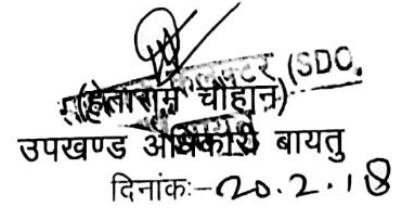 (SDO,
(हेताराम चौहान)
उपखण्ड अधिकारी बायतु
दिनांक:-20.2.18